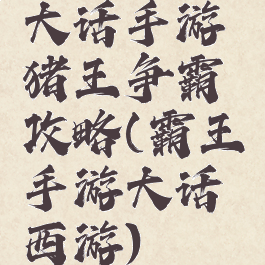 大话手游
猪王争霸
攻略(霸王
手游大话
西游)